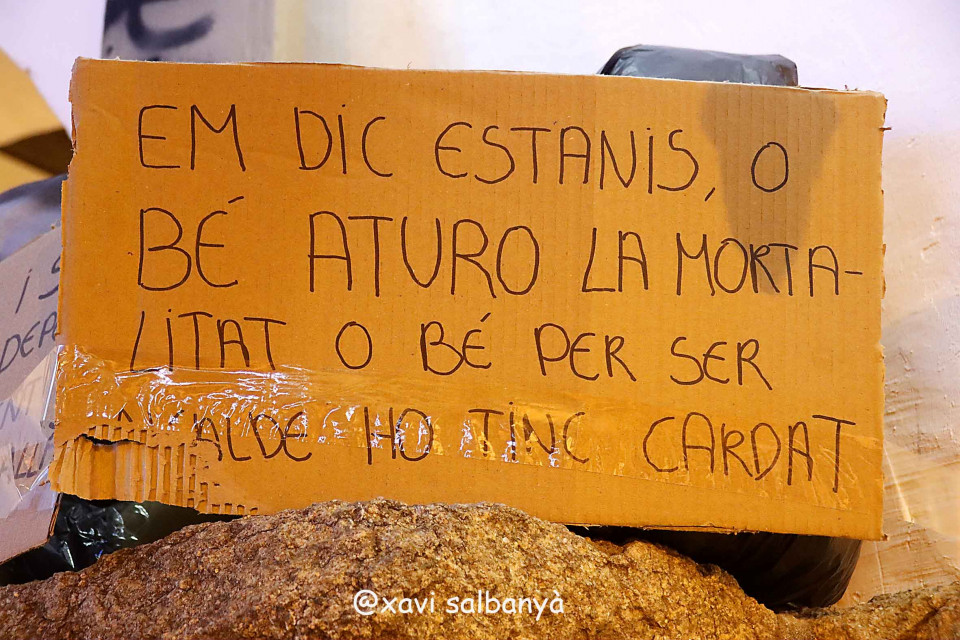 EM DIC ESTANIS, O
BÉ ATURO LA MORTA-
LITAT O BÉ PER SER
ALCALDE HO TINC CARDAT
@xavi salbanyà